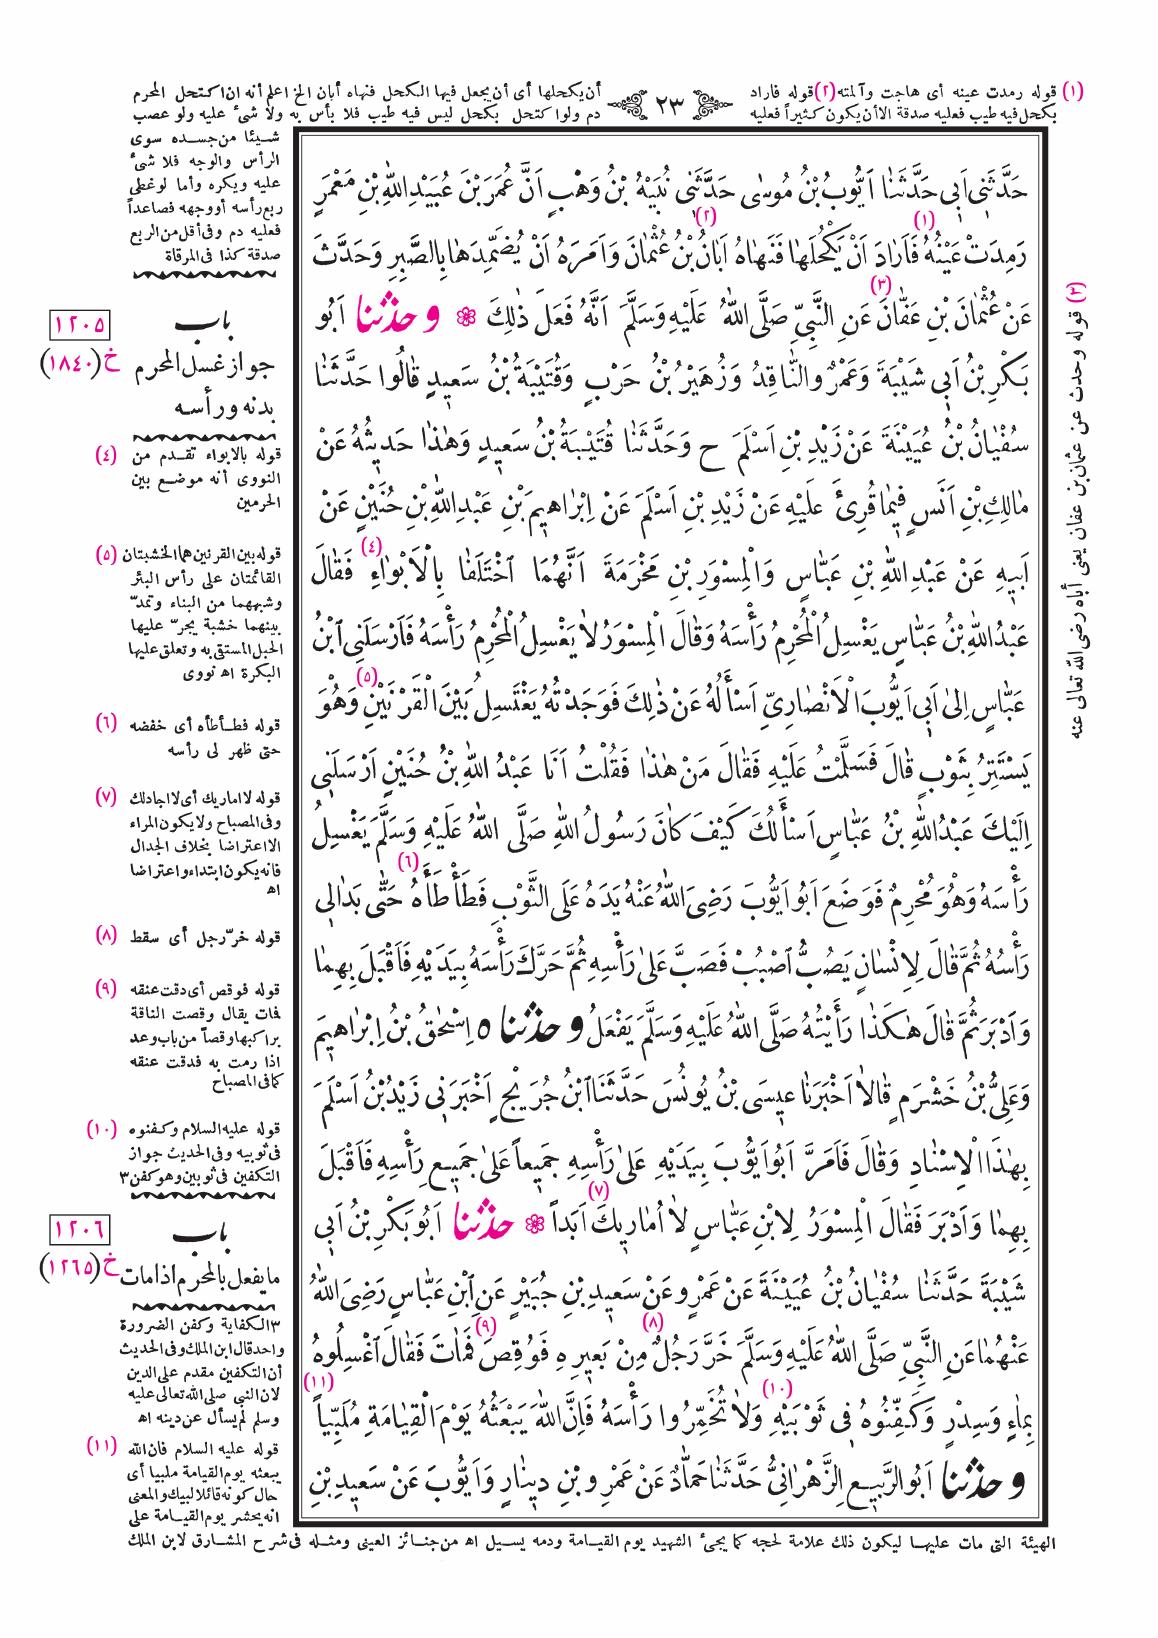 ٢٣
(١) قوله رمدت عينه أى هاجت وآلمته (٢) قوله فاراد
بكحل فيه طيب فعليه صدقة الا أن يكون كثيراً فعليه
أن يكحلها أى أن يجعل فيها الكحل فنهاه أبان الخ اعلم أنه ان اكتحل المحرم
دم ولو اكتحل بكحل ليس فيه طيب فلا بأس به ولا شىٔ عليه ولو عصب
شيئا من جسده سوى
الرأس والوجه فلا شىٔ
عليه ويكره وأما لو غطى
ربع رأسه أو وجهه فصاعداً
فعليه دم وفى أقل من الربع
صدقة كذا فى المرقاة
حَدَّثَنِى أَبِى حَدَّثَنَا أَيُّوبُ بْنُ مُوسٰى حَدَّثَنِى نُبَيْهُ بْنُ وَهْبٍ أَنَّ عُمَرَ بْنَ عُبَيْدِ اللهِ بْنِ مَعْمَرٍ
رَمِدَتْ عَيْنُهُ (١) فَاَرَادَ اَنْ يَكْحُلَهَا (٢) فَنَهَاهُ اَبَانُ بْنُ عُثْمَانَ وَاَمَرَهُ اَنْ يُضَمِّدَهَا بِالصَّبِرِ وَحَدَّثَ
عَنْ عُثْمَانَ بْنِ عَفَّانَ (٣) عَنِ النَّبِيِّ صَلَّى اللهُ عَلَيْهِ وَسَلَّمَ اَنَّهُ فَعَلَ ذٰلِكَ ۞ وحَدَّثَنَا اَبُو
بَكْرِ بْنُ اَبِى شَيْبَةَ وَعَمْرٌو النَّاقِدُ وَزُهَيْرُ بْنُ حَرْبٍ وَقُتَيْبَةُ بْنُ سَعِيدٍ قَالُوا حَدَّثَنَا
سُفْيَانُ بْنُ عُيَيْنَةَ عَنْ زَيْدِ بْنِ اَسْلَمَ ح وَحَدَّثَنَا قُتَيْبَةُ بْنُ سَعِيدٍ وَهٰذَا حَدِيثُهُ عَنْ
مَالِكِ بْنِ اَنَسٍ فِيمَا قُرِئَ عَلَيْهِ عَنْ زَيْدِ بْنِ اَسْلَمَ عَنْ اِبْرَاهِيمَ بْنِ عَبْدِ اللهِ بْنِ حُنَيْنٍ عَنْ
اَبِيهِ عَنْ عَبْدِ اللهِ بْنِ عَبَّاسٍ وَالْمِسْوَرِ بْنِ مَخْرَمَةَ اَنَّهُمَا اخْتَلَفَا بِالْاَبْوَاءِ (٤) فَقَالَ
عَبْدُ اللهِ بْنُ عَبَّاسٍ يَغْسِلُ الْمُحْرِمُ رَأْسَهُ وَقَالَ الْمِسْوَرُ لَا يَغْسِلُ الْمُحْرِمُ رَأْسَهُ فَاَرْسَلَنِى ابْنُ
عَبَّاسٍ اِلٰى اَبِى اَيُّوبَ الْاَنْصَارِيِّ اَسْأَلُهُ عَنْ ذٰلِكَ فَوَجَدْتُهُ يَغْتَسِلُ بَيْنَ الْقَرْنَيْنِ (٥) وَهُوَ
يَسْتَتِرُ بِثَوْبٍ قَالَ فَسَلَّمْتُ عَلَيْهِ فَقَالَ مَنْ هٰذَا فَقُلْتُ اَنَا عَبْدُ اللهِ بْنُ حُنَيْنٍ اَرْسَلَنِى
اِلَيْكَ عَبْدُ اللهِ بْنُ عَبَّاسٍ اَسْأَلُكَ كَيْفَ كَانَ رَسُولُ اللهِ صَلَّى اللهُ عَلَيْهِ وَسَلَّمَ يَغْسِلُ
رَأْسَهُ وَهُوَ مُحْرِمٌ فَوَضَعَ اَبُو اَيُّوبَ رَضِىَ اللهُ عَنْهُ يَدَهُ عَلَى الثَّوْبِ فَطَأْطَأَهُ (٦) حَتّٰى بَدَا لِى
رَأْسُهُ ثُمَّ قَالَ لِاِنْسَانٍ يَصُبُّ اصْبُبْ فَصَبَّ عَلٰى رَأْسِهِ ثُمَّ حَرَّكَ رَأْسَهُ بِيَدَيْهِ فَاَقْبَلَ بِهِمَا
وَاَدْبَرَ ثُمَّ قَالَ هٰكَذَا رَأَيْتُهُ صَلَّى اللهُ عَلَيْهِ وَسَلَّمَ يَفْعَلُ وحَدَّثَنَاه اِسْحٰقُ بْنُ اِبْرَاهِيمَ
وَعَلِىُّ بْنُ خَشْرَمٍ قَالَا اَخْبَرَنَا عِيسَى بْنُ يُونُسَ حَدَّثَنَا ابْنُ جُرَيْجٍ اَخْبَرَنِى زَيْدُ بْنُ اَسْلَمَ
بِهٰذَا الْاِسْنَادِ وَقَالَ فَاَمَرَّ اَبُو اَيُّوبَ بِيَدَيْهِ عَلٰى رَأْسِهِ جَمِيعاً عَلٰى جَمِيعِ رَأْسِهِ فَاَقْبَلَ
بِهِمَا وَاَدْبَرَ فَقَالَ الْمِسْوَرُ لِابْنِ عَبَّاسٍ لَا اُمَارِيكَ (٧) اَبَداً ۞ حَدَّثَنَا اَبُو بَكْرِ بْنُ اَبِى
شَيْبَةَ حَدَّثَنَا سُفْيَانُ بْنُ عُيَيْنَةَ عَنْ عَمْرٍو عَنْ سَعِيدِ بْنِ جُبَيْرٍ عَنِ ابْنِ عَبَّاسٍ رَضِىَ اللهُ
عَنْهُمَا عَنِ النَّبِيِّ صَلَّى اللهُ عَلَيْهِ وَسَلَّمَ خَرَّ رَجُلٌ (٨) مِنْ بَعِيرِهِ فَوُقِصَ (٩) فَمَاتَ فَقَالَ اغْسِلُوهُ
بِمَاءٍ وَسِدْرٍ وَكَفِّنُوهُ فِى ثَوْبَيْهِ (١٠) وَلَا تُخَمِّرُوا رَأْسَهُ فَاِنَّ اللهَ يَبْعَثُهُ يَوْمَ الْقِيَامَةِ مُلَبِّياً (١١)
وحَدَّثَنَا اَبُو الرَّبِيعِ الزَّهْرَانِىُّ حَدَّثَنَا حَمَّادٌ عَنْ عَمْرِو بْنِ دِينَارٍ وَاَيُّوبَ عَنْ سَعِيدِ بْنِ
(٣) قوله وحدث عن عثمان بن عفان يعنى أباه رضى الله تعالى عنه
١٢٠٥
خ (١٨٤٠)
باب
جواز غسل المحرم
بدنه ورأسه
(٤) قوله بالابواء تقدم من
النووى أنه موضع بين
الحرمين
(٥) قوله بين القرنين هما الخشبتان
القائمتان على رأس البئر
وشبههما من البناء وتمدّ
بينهما خشبة يجرّ عليها
الحبل المستقى به وتعلق عليها
البكرة اه نووى
(٦) قوله فطأطأه أى خفضه
حتى ظهر لى رأسه
(٧) قوله لا اماريك أى لا اجادلك
وفى المصباح ولا يكون المراء
الا اعتراضا بخلاف الجدال
فانه يكون ابتداء واعتراضا
اه
(٨) قوله خرّ رجل أى سقط
(٩) قوله فوقص أى دقت عنقه
فمات يقال وقصت الناقة
براكبها وقصاً من باب وعد
اذا رمت به فدقت عنقه
كما فى المصباح
(١٠) قوله عليه السلام وكفنوه
فى ثوبيه وفى الحديث جواز
التكفين فى ثوبين وهو كفن ٣
١٢٠٦
خ (١٢٦٥)
باب
ما يفعل بالمحرم اذا مات
٣ الكفاية وكفن الضرورة
واحد قال ابن الملك وفى الحديث
أن التكفين مقدم على الدين
لان النبى صلى الله تعالى عليه
وسلم لم يسأل عن دينه اه
(١١) قوله عليه السلام فان الله
يبعثه يوم القيامة ملبيا أى
حال كونه قائلا لبيك والمعنى
انه يحشر يوم القيامة على
الهيئة التى مات عليها ليكون ذلك علامة لحجه كما يجىٔ الشهيد يوم القيامة ودمه يسيل اه من جنائز العينى ومثله فى شرح المشارق لابن الملك